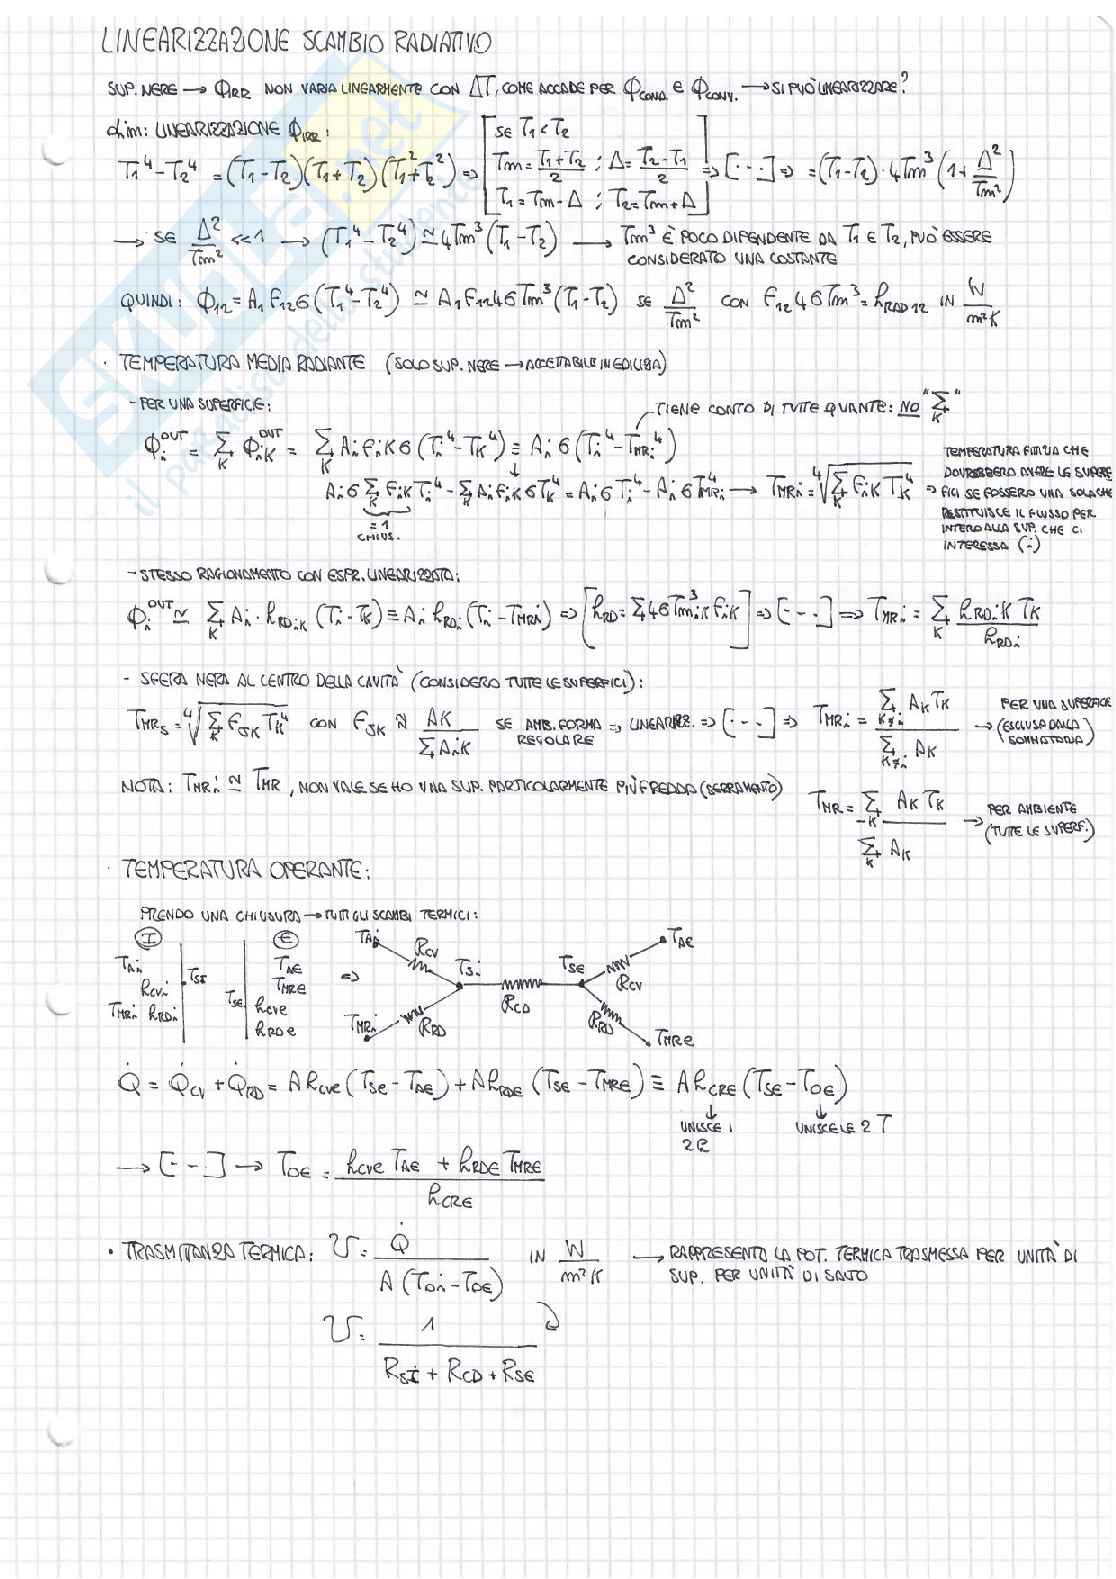 LINEARIZZAZIONE SCAMBIO RADIATIVO
SUP. NERE → ϕIRR NON VARIA LINEARMENTE CON ΔT, COME ACCADE PER ϕCOND E ϕCONV. → SI PUÒ LINEARIZZARE?
dim: LINEARIZZAZIONE ϕIRR:
T₁⁴ - T₂⁴ = (T₁-T₂)(T₁+T₂)(T₁²+T₂²) ⇒ [SE T₁<T₂
Tm = (T₁+T₂)/2 ; Δ = (T₂-T₁)/2
T₁ = Tm-Δ ; T₂ = Tm+Δ] ⇒ [---] ⇒ = (T₁-T₂)·4Tm³(1+Δ²/Tm²)
→ SE Δ²/Tm² ≪ 1 → (T₁⁴-T₂⁴) ≃ 4Tm³(T₁-T₂) → Tm³ È POCO DIPENDENTE DA T₁ E T₂, PUÒ ESSERE
CONSIDERATO UNA COSTANTE
QUINDI: ϕ₁₂ = A₁F₁₂σ(T₁⁴-T₂⁴) ≃ A₁F₁₂4σTm³(T₁-T₂) SE Δ²/Tm² CON F₁₂4σTm³ = hRAD12 IN W/m²K
· TEMPERATURA MEDIA RADIANTE (SOLO SUP. NERE → ACCETTABILE IN EDILIZIA)
- PER UNA SUPERFICIE:
TIENE CONTO DI TUTTE QUANTE: NO "Σ K"
ϕi OUT = ΣK ϕiK OUT = ΣK Ai FiK σ(Ti⁴-TK⁴) ≡ Ai σ(Ti⁴-TMRi⁴)
Ai σ ΣK FiK Ti⁴ - ΣK Ai FiK σ TK⁴ = Ai σ Ti⁴ - Ai σ TMRi⁴ → TMRi = ⁴√(ΣK FiK TK⁴) ⇒
=1
CHIUS.
TEMPERATURA FITTIZIA CHE
DOVREBBERO AVERE LE SUPER
FICI SE FOSSERO UNA SOLA CHE
RESTITUISCE IL FLUSSO PER
INTERO ALLA SUP. CHE CI
INTERESSA (i)
- STESSO RAGIONAMENTO CON ESPR. LINEARIZZATA:
ϕi OUT ≃ ΣK Ai · hRDiK (Ti-TK) ≡ Ai hRDi (Ti-TMRi) ⇒ [hRD = Σ4σTm³iK FiK] ⇒ [---] ⇒ TMRi = ΣK hRDiK TK / hRDi
- SFERA NERA AL CENTRO DELLA CAVITÀ (CONSIDERO TUTTE LE SUPERFICI):
TMRs = ⁴√(ΣK FSK TK⁴) CON FSK ≈ AK/ΣAiK SE AMB. FORMA REGOLARE ⇒ LINEARIZZ. ⇒ [---] ⇒ TMRi = ΣK≠i AK TK / ΣK≠i AK → PER UNA SUPERFICE
(ESCLUSA DALLA
SOMMATORIA)
NOTA: TMRi ≃ TMR, NON VALE SE HO UNA SUP. PARTICOLARMENTE PIÙ FREDDA (SERRAMENTO)
TMR = ΣK AK TK / ΣK AK → PER AMBIENTE
(TUTTE LE SUPERF.)
· TEMPERATURA OPERANTE:
PRENDO UNA CHIUSURA → TUTTI GLI SCAMBI TERMICI:
I E
TAi TSI TAE
hCVi TMRE
TMRi hRDi TSE hCVE
hRDE
⇒
TAi RCV TSi RCD TSE RCV TAE
TMRi RRD RRD TMRe
Q̇ = Q̇CV + Q̇RD = A hCVE (TSE-TAE) + A hRDE (TSE-TMRE) ≡ A hCRE (TSE-TOE)
UNISCE I
2 R
UNISCE LE 2 T
→ [---] → TOE = (hCVE TAE + hRDE TMRE) / hCRE
· TRASMITTANZA TERMICA: U = Q̇ / A(TOi-TOE) IN W/m²K → RAPPRESENTO LA POT. TERMICA TRASMESSA PER UNITÀ DI
SUP. PER UNITÀ DI SALTO
U = 1 / (RSI + RCD + RSE)
skuola.net
il paradiso dello studente